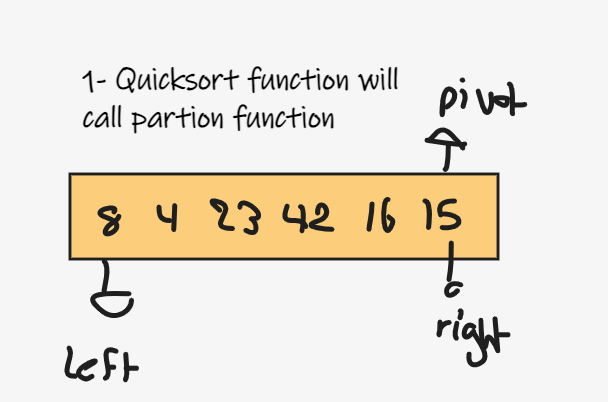 1- Quicksort function will
call partion function
pivot
8 4 23 42 16 15
left
right